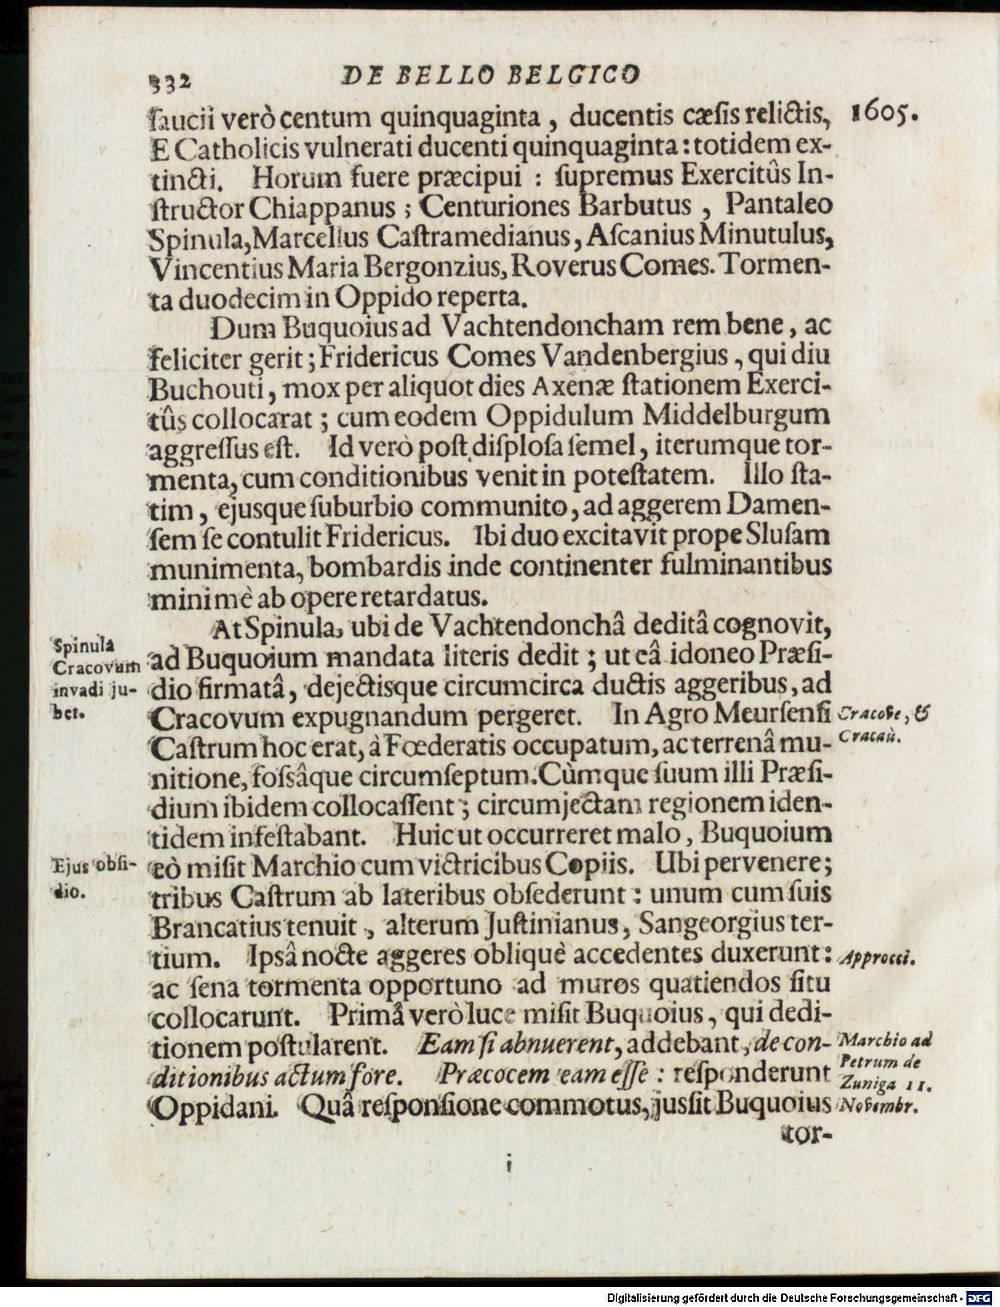 332 DE BELLO BELGICO
ſaucii verò centum quinquaginta, ducentis cæſis relictis, 1605.
E Catholicis vulnerati ducenti quinquaginta: totidem ex-
tincti. Horum fuere præcipui: ſupremus Exercitûs In-
ſtructor Chiappanus; Centuriones Barbutus, Pantaleo
Spinula, Marcellus Caſtramedianus, Aſcanius Minutulus,
Vincentius Maria Bergonzius, Roverus Comes. Tormen-
ta duodecim in Oppido reperta.
Dum Buquoius ad Vachtendoncham rem bene, ac
feliciter gerit; Fridericus Comes Vandenbergius, qui diu
Buchouti, mox per aliquot dies Axenæ ſtationem Exerci-
tûs collocarat; cum eodem Oppidulum Middelburgum
aggreſſus eſt. Id verò poſt diſploſa ſemel, iterumque tor-
menta, cum conditionibus venit in poteſtatem. Illo ſta-
tim, ejusque ſuburbio communito, ad aggerem Damen-
ſem ſe contulit Fridericus. Ibi duo excitavit prope Sluſam
munimenta, bombardis inde continenter fulminantibus
minimè ab opere retardatus.
At Spinula, ubi de Vachtendonchâ deditâ cognovit,
Spinula
Cracovum
invadi ju-
bet.
ad Buquoium mandata literis dedit; ut eâ idoneo Præſi-
dio firmatâ, dejectisque circumcirca ductis aggeribus, ad
Cracovum expugnandum pergeret. In Agro Meurſenſi
Cracove, &
Cracau.
Caſtrum hoc erat, à Fœderatis occupatum, ac terrenâ mu-
nitione, foſsâque circumſeptum. Cùmque ſuum illi Præſi-
dium ibidem collocaſſent; circumjectam regionem iden-
tidem infeſtabant. Huic ut occurreret malo, Buquoium
Ejus obſi-
dio.
eò miſit Marchio cum victricibus Copiis. Ubi pervenere;
tribus Caſtrum ab lateribus obſederunt: unum cum ſuis
Brancatius tenuit, alterum Juſtinianus, Sangeorgius ter-
tium. Ipsâ nocte aggeres obliquè accedentes duxerunt: Approcci.
ac ſena tormenta opportuno ad muros quatiendos ſitu
collocarunt. Primâ verò luce miſit Buquoius, qui dedi-
tionem poſtularent. Eam ſi abnuerent, addebant, de con-
Marchio ad
Petrum de
Zuniga 11.
Novembr.
ditionibus actum fore. Præcocem eam eſſe: reſponderunt
Oppidani. Quâ reſponſione commotus, jusſit Buquoius
tor-
i
Digitalisierung gefördert durch die Deutsche Forschungsgemeinschaft - DFG